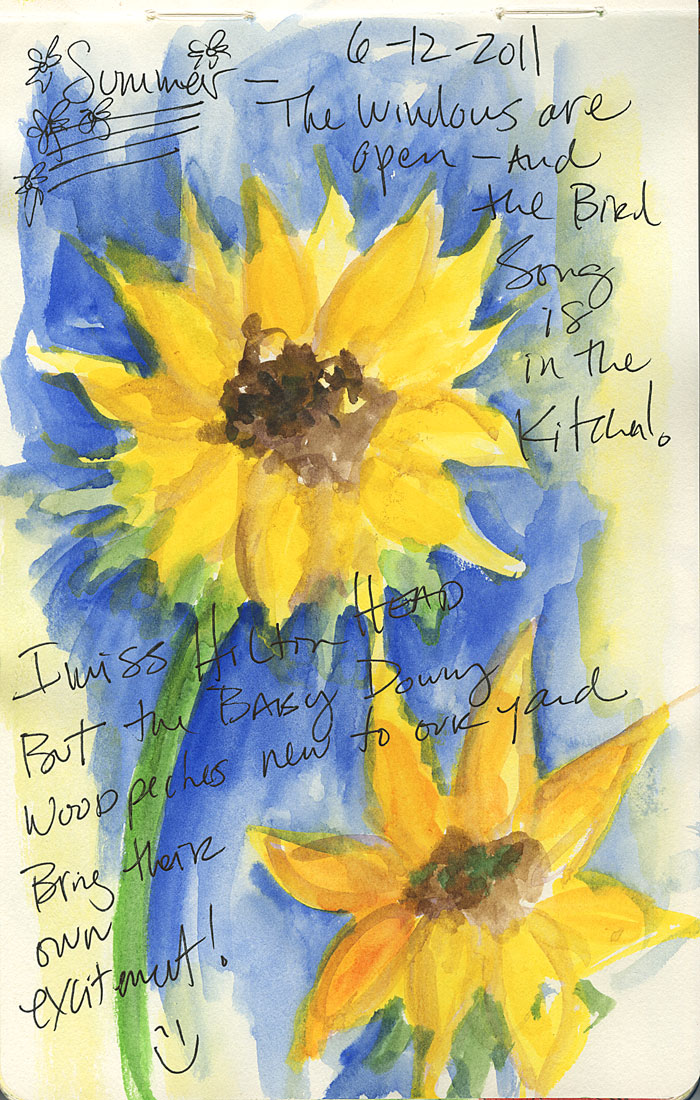 6-12-2011
Summer -
The windows are
open - And
the Bird
Song
is
in the
Kitchen.
I miss Hilton HEAD
But the BABy Downy
Woodpeckers new to our yard
Bring their
own
excitement!